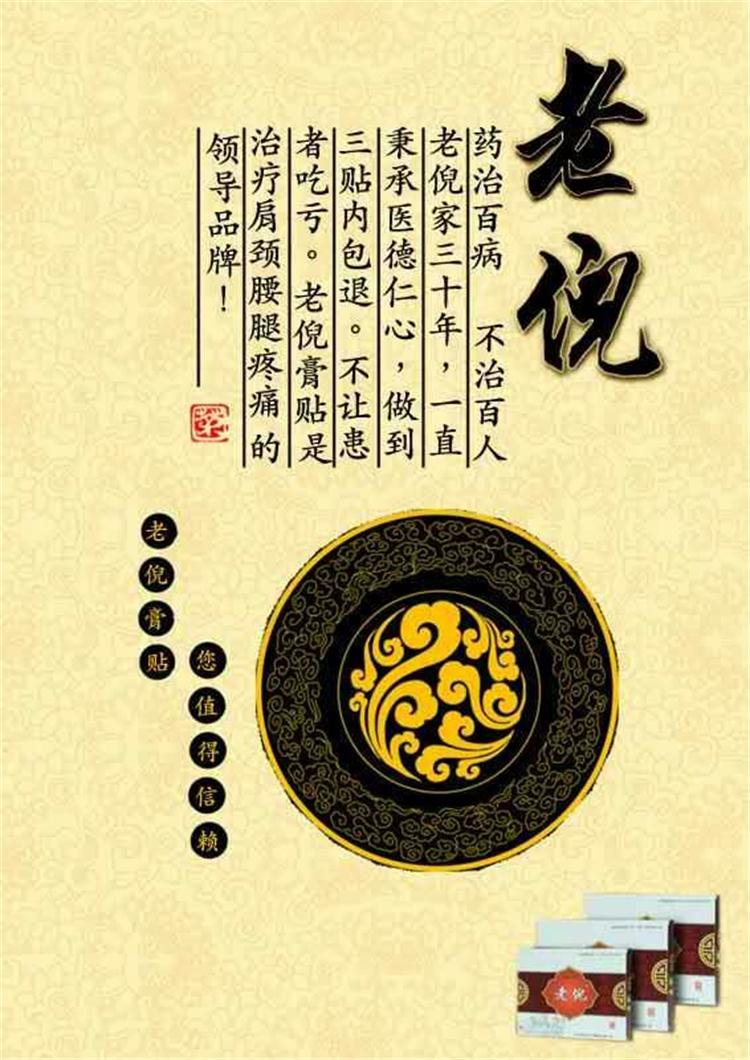 老倪
药治百病 不治百人
老倪家三十年，一直
秉承医德仁心，做到
三贴内包退。不让患
者吃亏。老倪膏贴是
治疗肩颈腰腿疼痛的
领导品牌！
老倪膏贴
您值得信赖
老倪